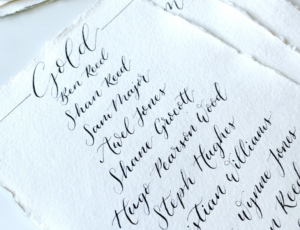 Gold
Ben Reed
Shan Reed
Sam Major
Awel Jones
Shane Grocott
Hugo Pearson Wood
Steph Hughes
stian Williams
Wynne Jones
n Reed
m